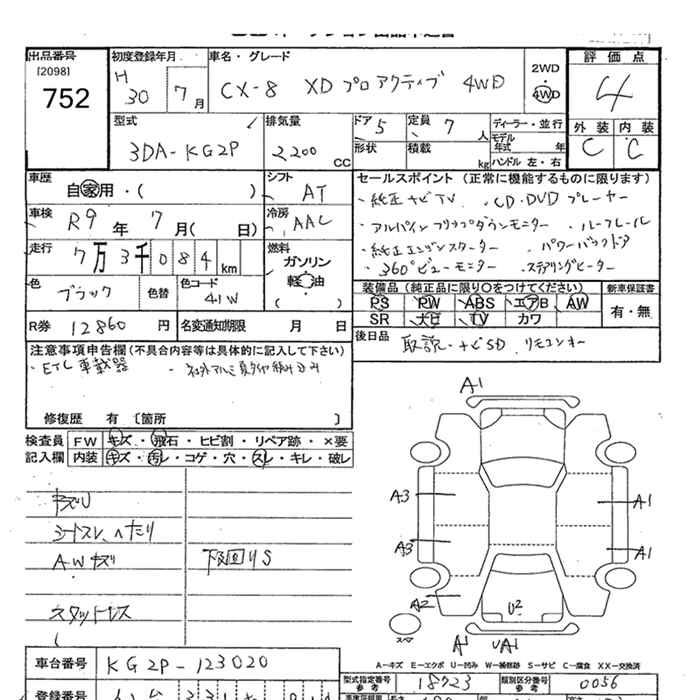 出品番号
[2098]
752
初度登録年月
H 30 7 月
車名・グレード
CX-8 XD プロアクティブ 4WD
2WD
・
4WD
評価点
4
外装 内装
C C
型式
3DA-KG2P
排気量
2,200 CC
ドア 5
定員 7 人
形状
積載 kg
ディーラー・並行
モデル年式 年
ハンドル 左・右
車歴
自家用・( )
シフト
AT
車検
R9 年 7 月( 日)
冷房
AAC
走行
7万3千084 km
燃料
ガソリン
軽油
( )
色
ブラック
色替
色コード
41W
R券 12860 円
名変通知期限 月 日
セールスポイント (正常に機能するものに限ります)
・純正ナビTV ・CD・DVDプレーヤー
・アルパインフリップダウンモニター ・ルーフレール
・純正エンジンスターター ・パワーバックドア
・360°ビューモニター ・ステアリングヒーター
装備品(純正品に限り○をつけてください)
新車保証書
PS PW ABS エアB AW
SR ナビ TV カワ
有・無
後日品
取説・ナビSD リモコンキー
注意事項申告欄(不具合内容等は具体的に記入して下さい)
・ETC車載器 ・社外アルミ夏タイヤ積み込み
修復歴 有 〔箇所 〕
検査員 FW キズ・飛石・ヒビ割・リペア跡・×要
記入欄 内装 キズ・汚レ・コゲ・穴・スレ・キレ・破レ
キズU
シートスレ、ヘたり
AWキズ
下廻りS
スタッドレス
A1
A3
A1
A3
A1
A2
U2
スペア
A1
UA1
A-キズ E-エクボ U-凹み W-補修跡 S-サビ C-腐食 XX-交換済
車台番号 KG2P-123020
型式指定番号
参考
18723
類別区分番号
参考
0056
登録番号